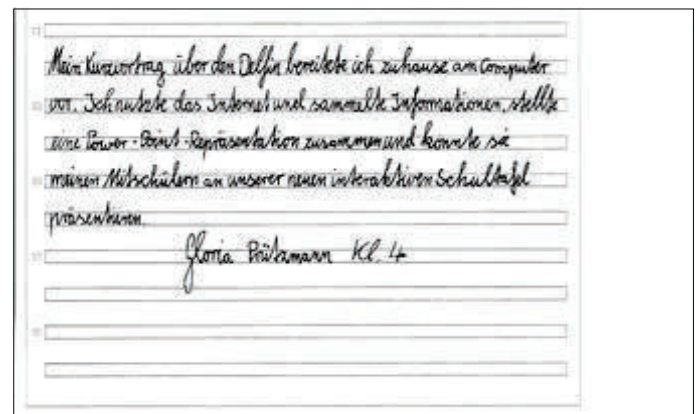 Mein Kurzvortrag über den Delfin bereitete ich zuhause am Computer
vor. Ich nutzte das Internet und sammelte Informationen, stellte
eine Power-Point-Repräsentation zusammen und konnte sie
meinen Mitschülern an unserer neuen interaktiven Schultafel
präsentieren.
Gloria Prützmann Kl. 4